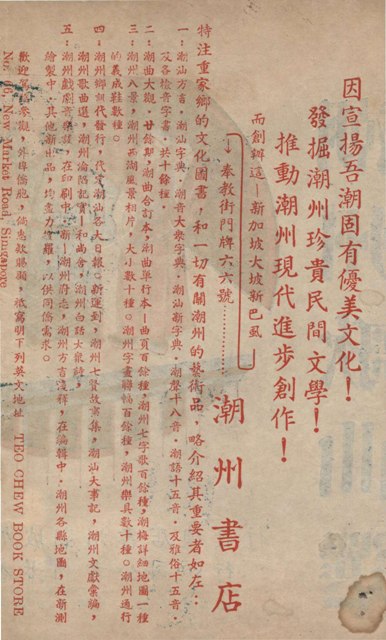 因宣揚吾潮固有優美文化！
發掘潮州珍貴民間文學！
推動潮州現代進步創作！
而創辦這—新加坡大坡新巴虱
奉教街門牌六六號
潮州書店
特注重家鄉的文化圖書，和一切有關潮州的藝術品，略介紹其重要者如左：
一：潮汕方言．潮汕字典．潮音大衆字典．潮汕新字典．潮聲十八音．潮語十五音．及雅俗十五音．
及各檢音字書，共十餘種．
二：潮曲大觀，廿餘期，潮曲合訂本，潮曲單行本—曲頁百餘種，潮州七字歌百餘種，潮梅詳細地圖一種
三：潮州八景，潮州西湖風景相片，大小數十種。潮州字畫聯幅百餘種，潮州樂具數十種。潮州通行
的義成鞋數種。
四：潮州鄉訊代發行，代定潮汕各大日報。新運到，潮州七賢故事集，潮汕大事記，潮州文獻彙編，
潮州歌曲選，潮州淪陷記實，和尚舍，潮州白話大衆詩，
五：潮州戲劇音樂談，在印刷中。新—潮州府志，潮州方言淺釋，在編輯中．潮州各縣地圖，在新測
繪製中．其他新出品，均盡力羅，以供同僑需求。
歡迎參觀，外埠僑胞，倘惠欵賜顧，祇寫明下列英文地址
TEO CHEW BOOK STORE
No. 66, New Market Road, Singapore